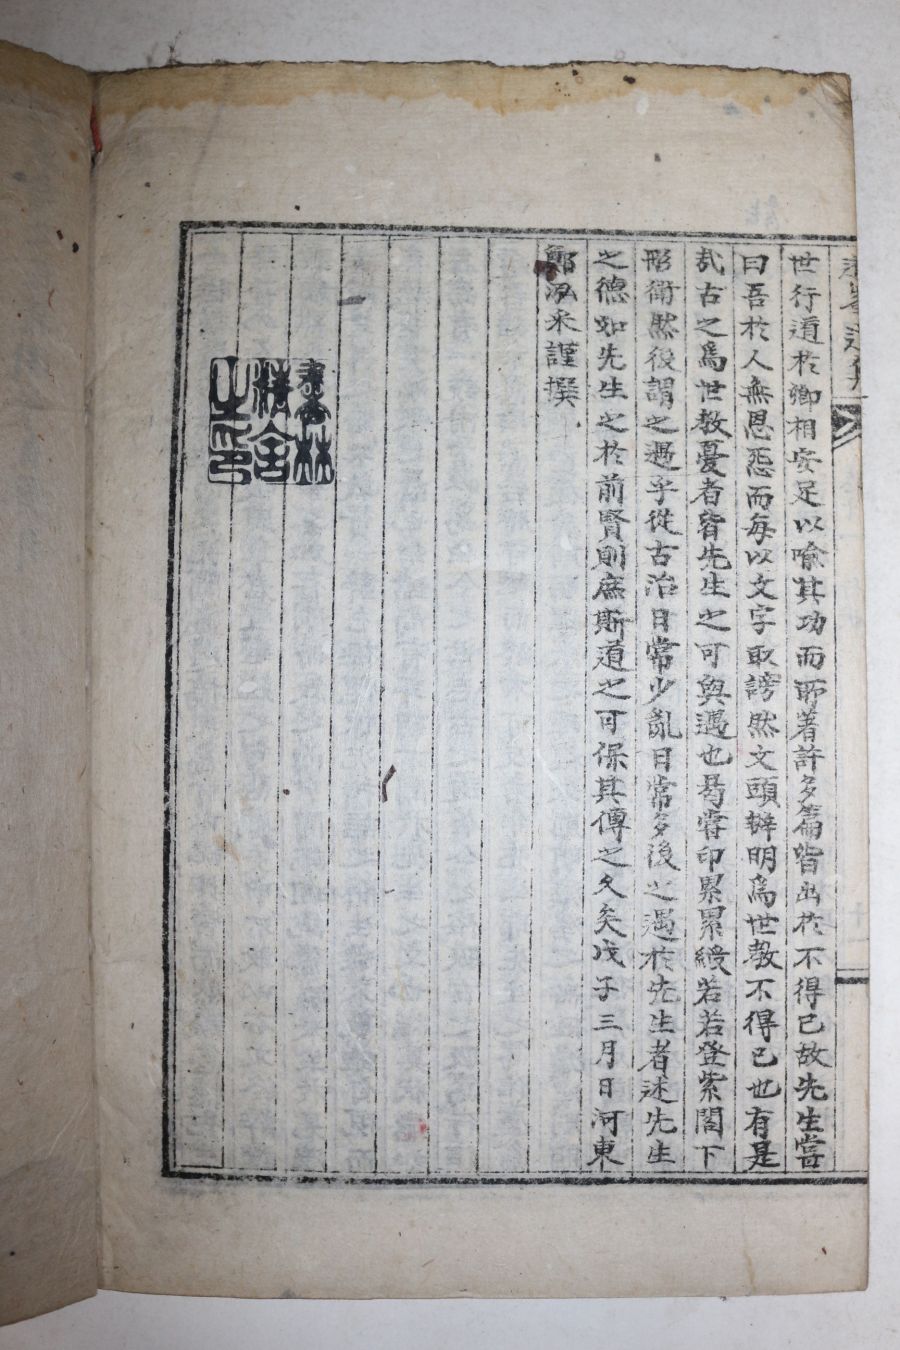 世行道於卿相安足以喩其功而所著許多篇皆出於不得已故先生嘗
曰吾於人無恩怨而每以文字取謗然文頭辦明爲世敎不得已也有是
㢤古之爲世敎憂者皆先生之可與遇也曷嘗印累累綬若若登紫閣下
形衛然後謂之遇乎從古治日常少亂日常多後之遇於先生者述先生
之德如先生之於前賢則庶斯道之可保其傳之久矣戊子三月日河東
鄭泓采謹撰
林
精舍
之印